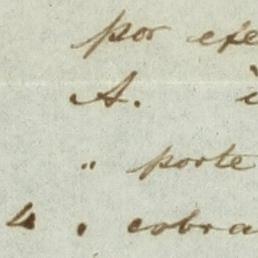 por eje
A. i
" porte
4 . cobra